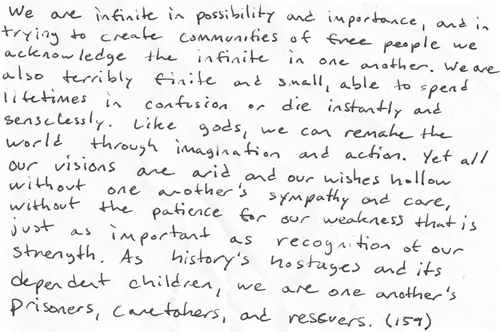 We are infinite in possibility and importance, and in
trying to create communities of free people we
acknowledge the infinite in one another. We are
also terribly finite and small, able to spend
lifetimes in confusion or die instantly and
senselessly. Like gods, we can remake the
world through imagination and action. Yet all
our visions are arid and our wishes hollow
without one another's sympathy and care,
without the patience for our weakness that is
just as important as recognition of our
strength. As history's hostages and its
dependent children, we are one another's
prisoners, caretakers, and rescuers. (159)